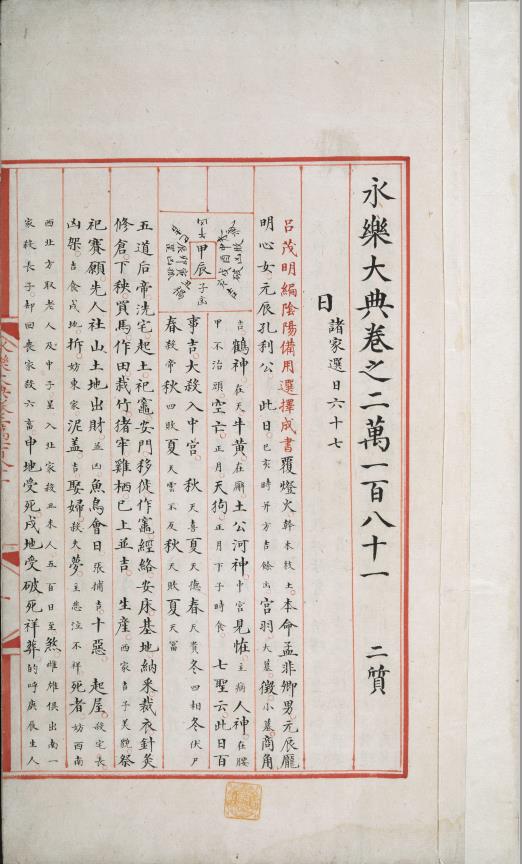 永樂大典卷之二萬一百八十一 二質
日 諸家選日六十七
吕茂明編陰陽備用選擇成書覆燈火幹木枝土本命孟非卿男元辰龐
明心女元辰孔利公 此日己亥時并方吉餘凶宫羽大墓徵小墓商角
甲辰
吉鶴神在天牛黄在廨土公河神中宫見恠主病人神在腰
甲不治頭空亡正月天狗正月下子時食 七聖云此日百
事吉大殺入中宫 秋天喜夏天德春天貴冬四相冬伏尸
春殺帝秋四敗夏天雲不反秋天敗夏天冨
五道后帝洗宅起土祀竈安門移徙作竈經絡安床基地納采裁衣針灸
修倉下秧買馬作田栽竹猪牢雞栖已上並吉 生產西家吉子美貌祭
祀賽願先人社山土地出財並凶魚鳥會日張捕吉十惡 起屋殺宅長
凶架吉食戌地拆妨東家泥盖吉娶婦殺夫夢主悲泣不祥死者妨西南
西北方取老人及中子呈入北家殺丑未人五百日至煞雌雄俱出南一
家殺長子却回喪家殺六畜申地受死戌地受破死祥葬的呼庚辰生人